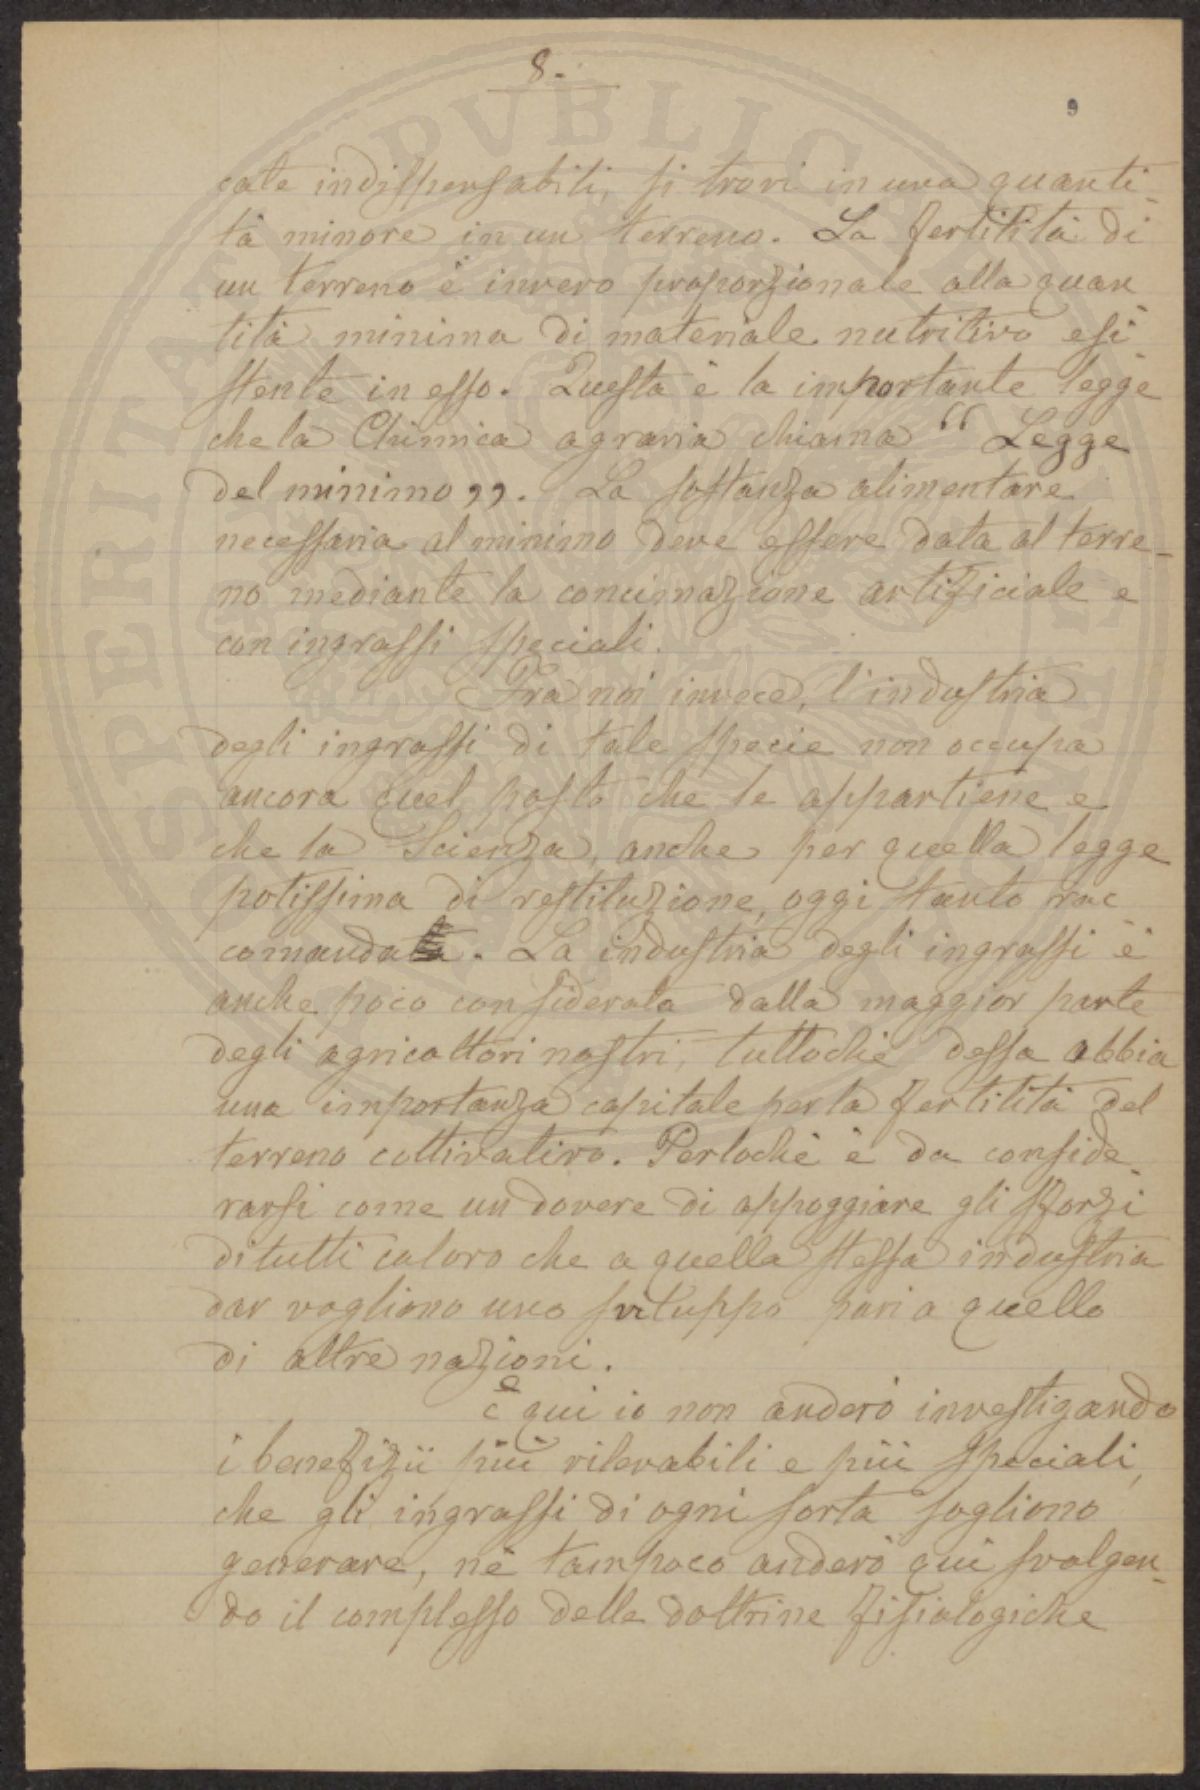 8.-
9
cate indispensabili, si trovi in una quanti-
tà minore in un terreno. La fertilità di
un terreno è invero proporzionale alla quan
tità minima di materiale nutritivo esi-
stente in esso. Questa è la importante legge
che la Chimica agraria chiama “ Legge
del minimo ,,. La sostanza alimentare
necessaria al minimo deve essere data al terre-
no mediante la concimazione artificiale e
con ingrassi speciali.
Fra noi invece, l'industria
degli ingrassi di tale specie non occupa
ancora quel posto che le appartiene e
che la Scienza, anche per quella legge
potissima di restituzione, oggi tanto rac
comanda. La industria degli ingrassi è
anche poco considerata dalla maggior parte
degli agricoltori nostri, tuttochè dessa abbia
una importanza capitale per la fertilità del
terreno coltivativo. Perlochè è da conside-
rarsi come un dovere di appoggiare gli sforzi
di tutti coloro che a quella stessa industria
dar vogliono uno sviluppo pari a quello
di altre nazioni.
E qui io non anderò investigando
i benefizii più rilevabili e più speciali,
che gli ingrassi di ogni sorta sogliono
generare, nè tampoco anderò quì svolgen-
do il complesso delle dottrine fisiologiche
PVBLICAE